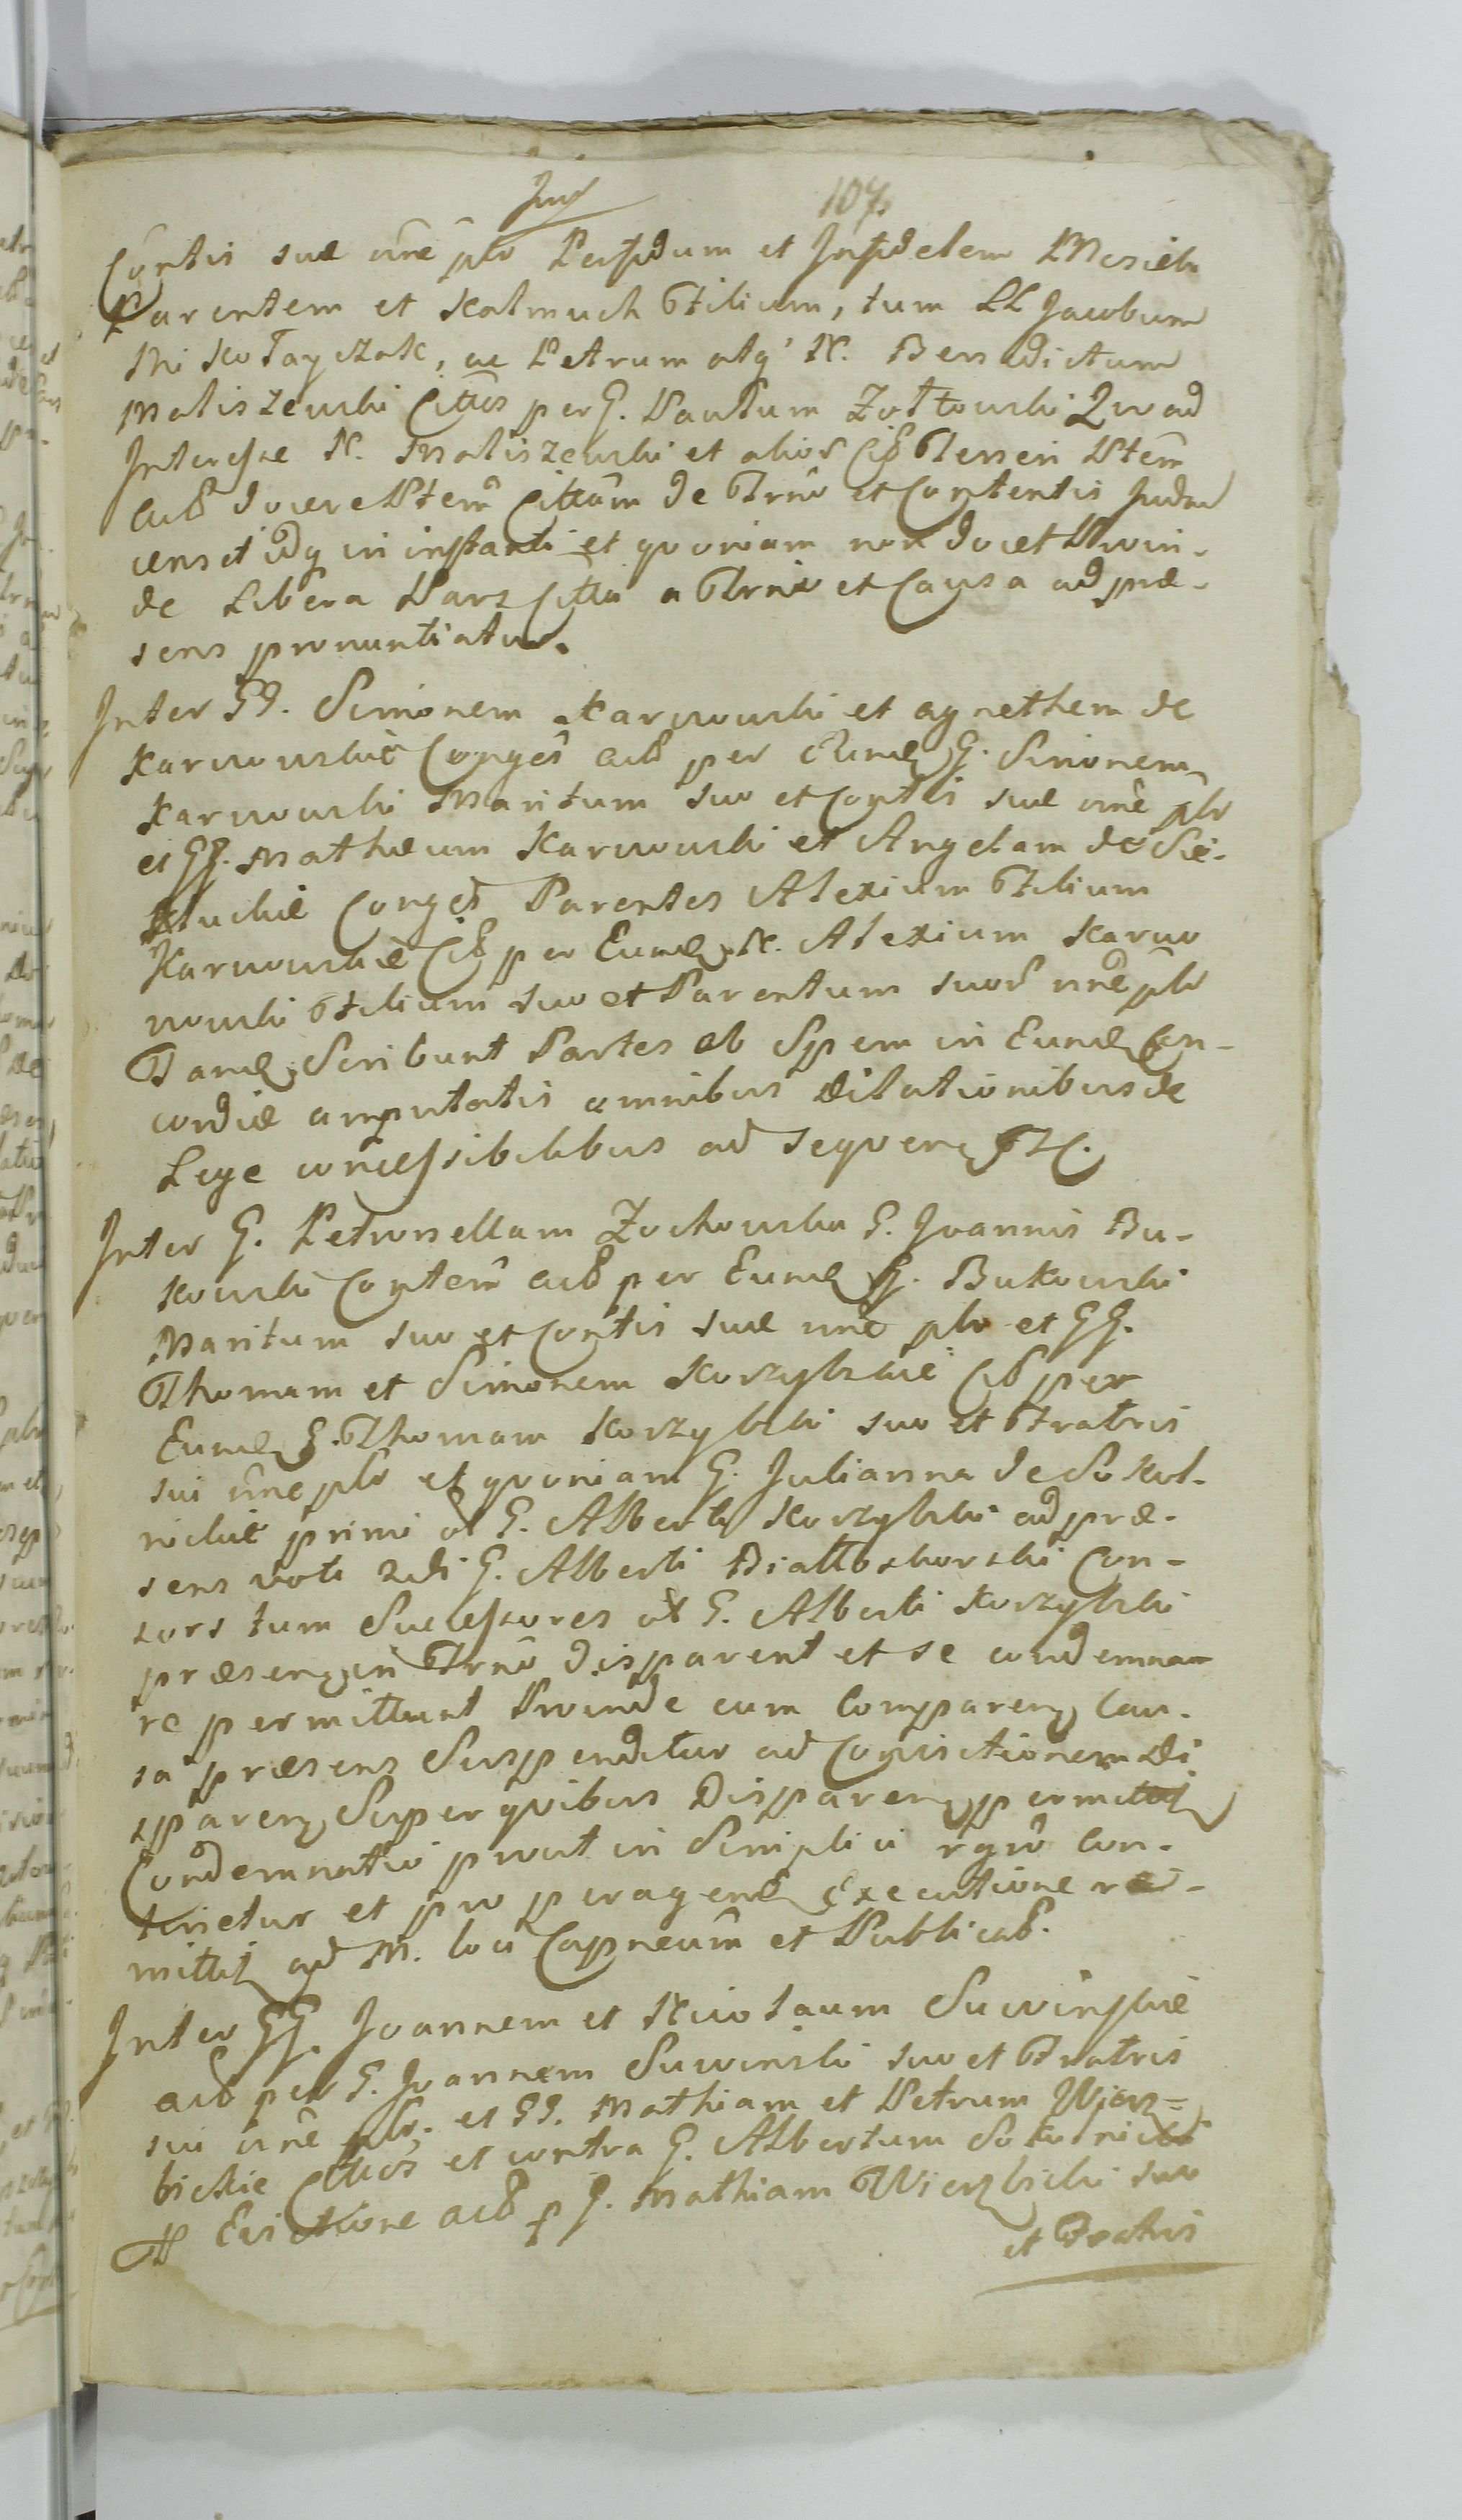 107
Contis suæ nñe plr Perfidum et Infidelem
Parentem et Kalmuch Filium, tum LL Jacobum
Mikołayczak, ac Petrum atq N. Benedictum
Maliszewski Cittos per G. Paulum Zołtowski Quoad
Interesse N. Maliszewski et alios Cib Teneri Ptem
Actb docere Ptem Cittam de Trno et Contentis Judm
censet idq in instanti et quoniam non docet Proin-
de Libera Pars Citta a Trno et Causa ad præ-
sens pronuntiatur.
Inter GG. Simonem Karwowski et Agnethem de
Karwowskie Conges actb per Eund G. Simonem
Karwowski Maritum suo et Contis suæ nñe plr
et GG. Mathæum Karwowski et Angelam de Sie-
Conges Parentes Alexium Filium
Karwowskie Cib per Eund N. Alexium Karwo
wowski Filium suo et Parentum suor nñe plr
Tand Scribunt Partes ob Spem in Eund Con-
cordiæ amputatis omnibus Dilationibus de
Lege concessibilibus ad sequen
Inter G. Petronellam Zochowska G. Joannis Bu-
kowski Contem actb per Eund G. Bukowski
Maritum suo et Contis suæ nñe plr et GG.
Thomam et Simonem Korzybskie Cib per
Eund G. Thomam Korzybski suo et Fratris
sui nñe plr et quoniam G. Julianna de Sokol-
nickie primi ol G. Alberti Korzybski ad præ-
sens voti 2di G. Alberti Białoskorski Con-
sors tum Successores ol G. Alberti Korzybski
præsen in Trno disparent et se condemna-
re permittunt Proinde cum Comparen Cau-
sa præsens Suspenditur ad Convictionem Di
sparen Super quibus Disparen permitti
Condemnatio prout in Simplici rgro Con-
tinetur et pro peragend Executione re-
mitti ad M. loci Capneum et Publicab.
Inter GG. Joannem et Nicolaum Suwinskie
actb per G. Joannem Suwinski suo et Fratris
sui nñe plr. et GG. Mathiam et Petrum Wierz=
bickie Cittos et contra G. Albertum Sokolnicki
Evictione actb p G. Mathiam Wierzbicki suo
et Fratris